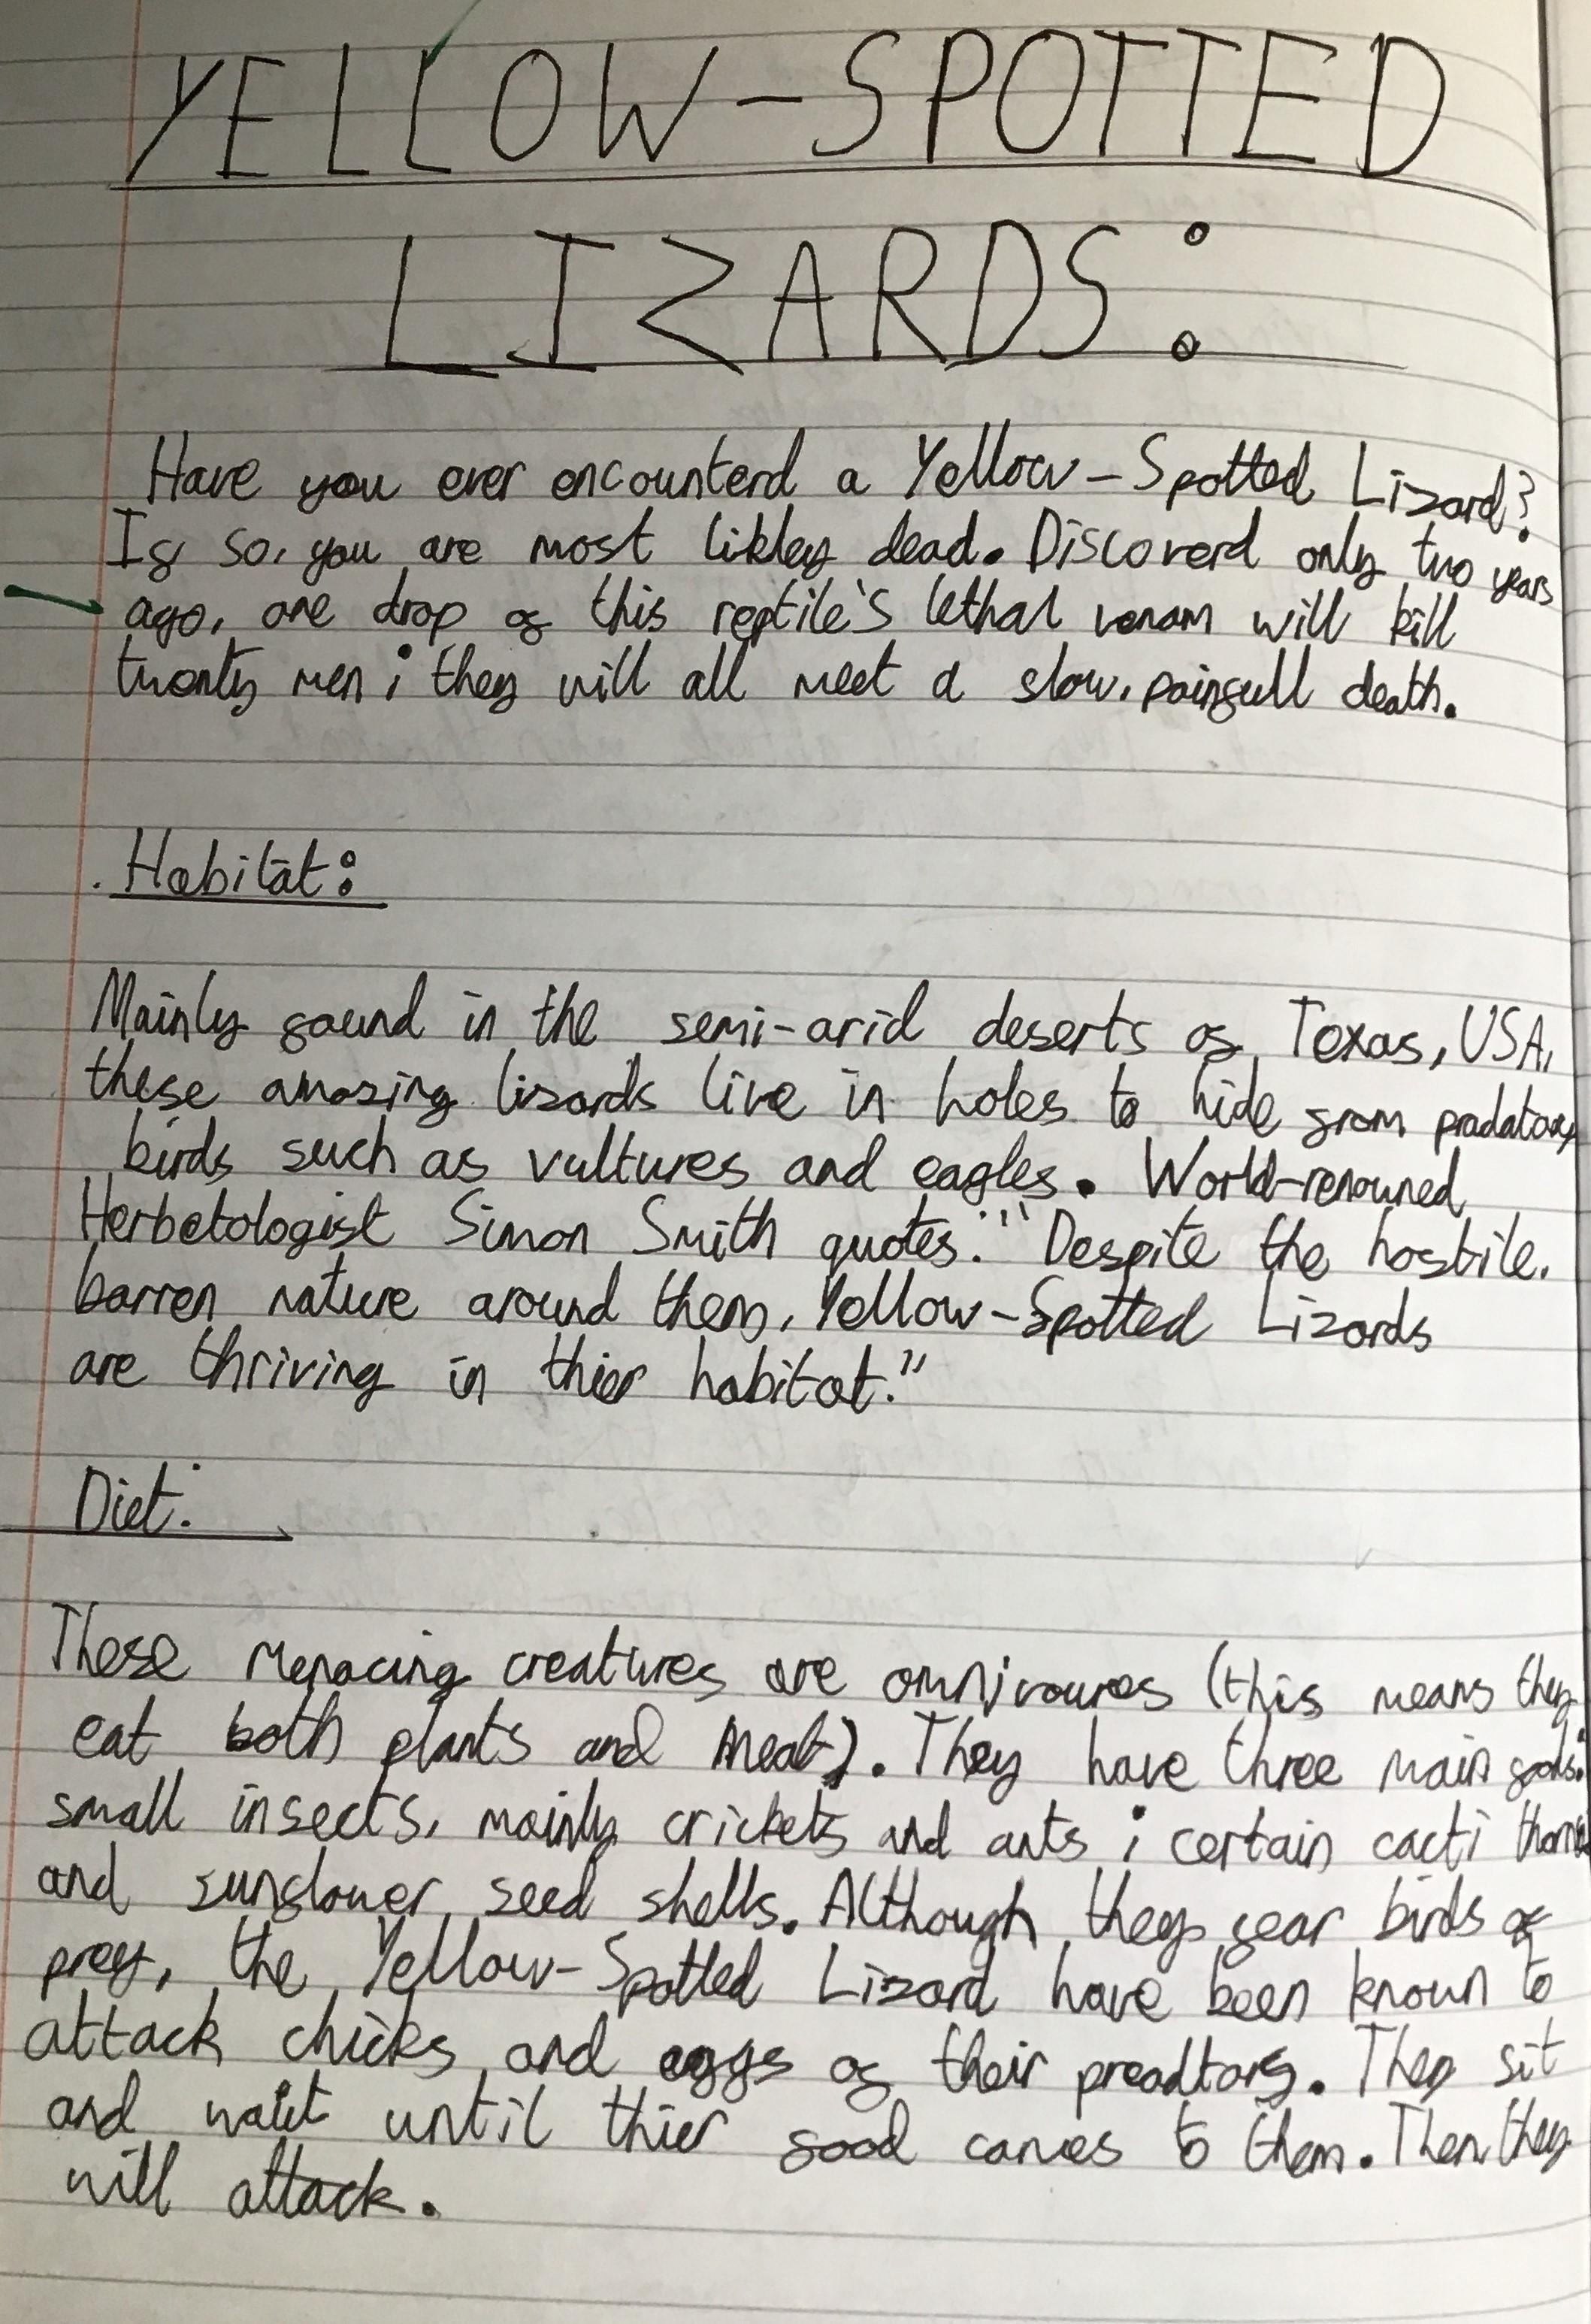 YELLOW-SPOTTED
LIZARDS:
Have you ever encounterd a Yellow-Spotted Lizard?
If so, you are most likley dead. Discoverd only two years
ago, one drop of this reptile's lethal venam will kill
twenty men; they will all meet a slow, painfull death.
Habitat:
Mainly found in the semi-arid deserts of Texas, USA,
these amazing lizards live in holes to hide from pradatory
birds such as vultures and eagles. World-renouned
Herbetologist Simon Smith quotes: "Despite the hostile,
barren nature around them, Yellow-Spotted Lizards
are thriving in thier habitat."
Diet:
These menacing creatures are omnivoures (this means they
eat both plants and meat). They have three main foods:
small insects, mainly crickets and ants; certain cacti
and sunflower seed shells. Although they fear birds of
prey, the Yellow-Spotted Lizard have been known to
attack chicks and eggs of their preadtors. They sit
and wait until thier food comes to them. Then they
will attack.